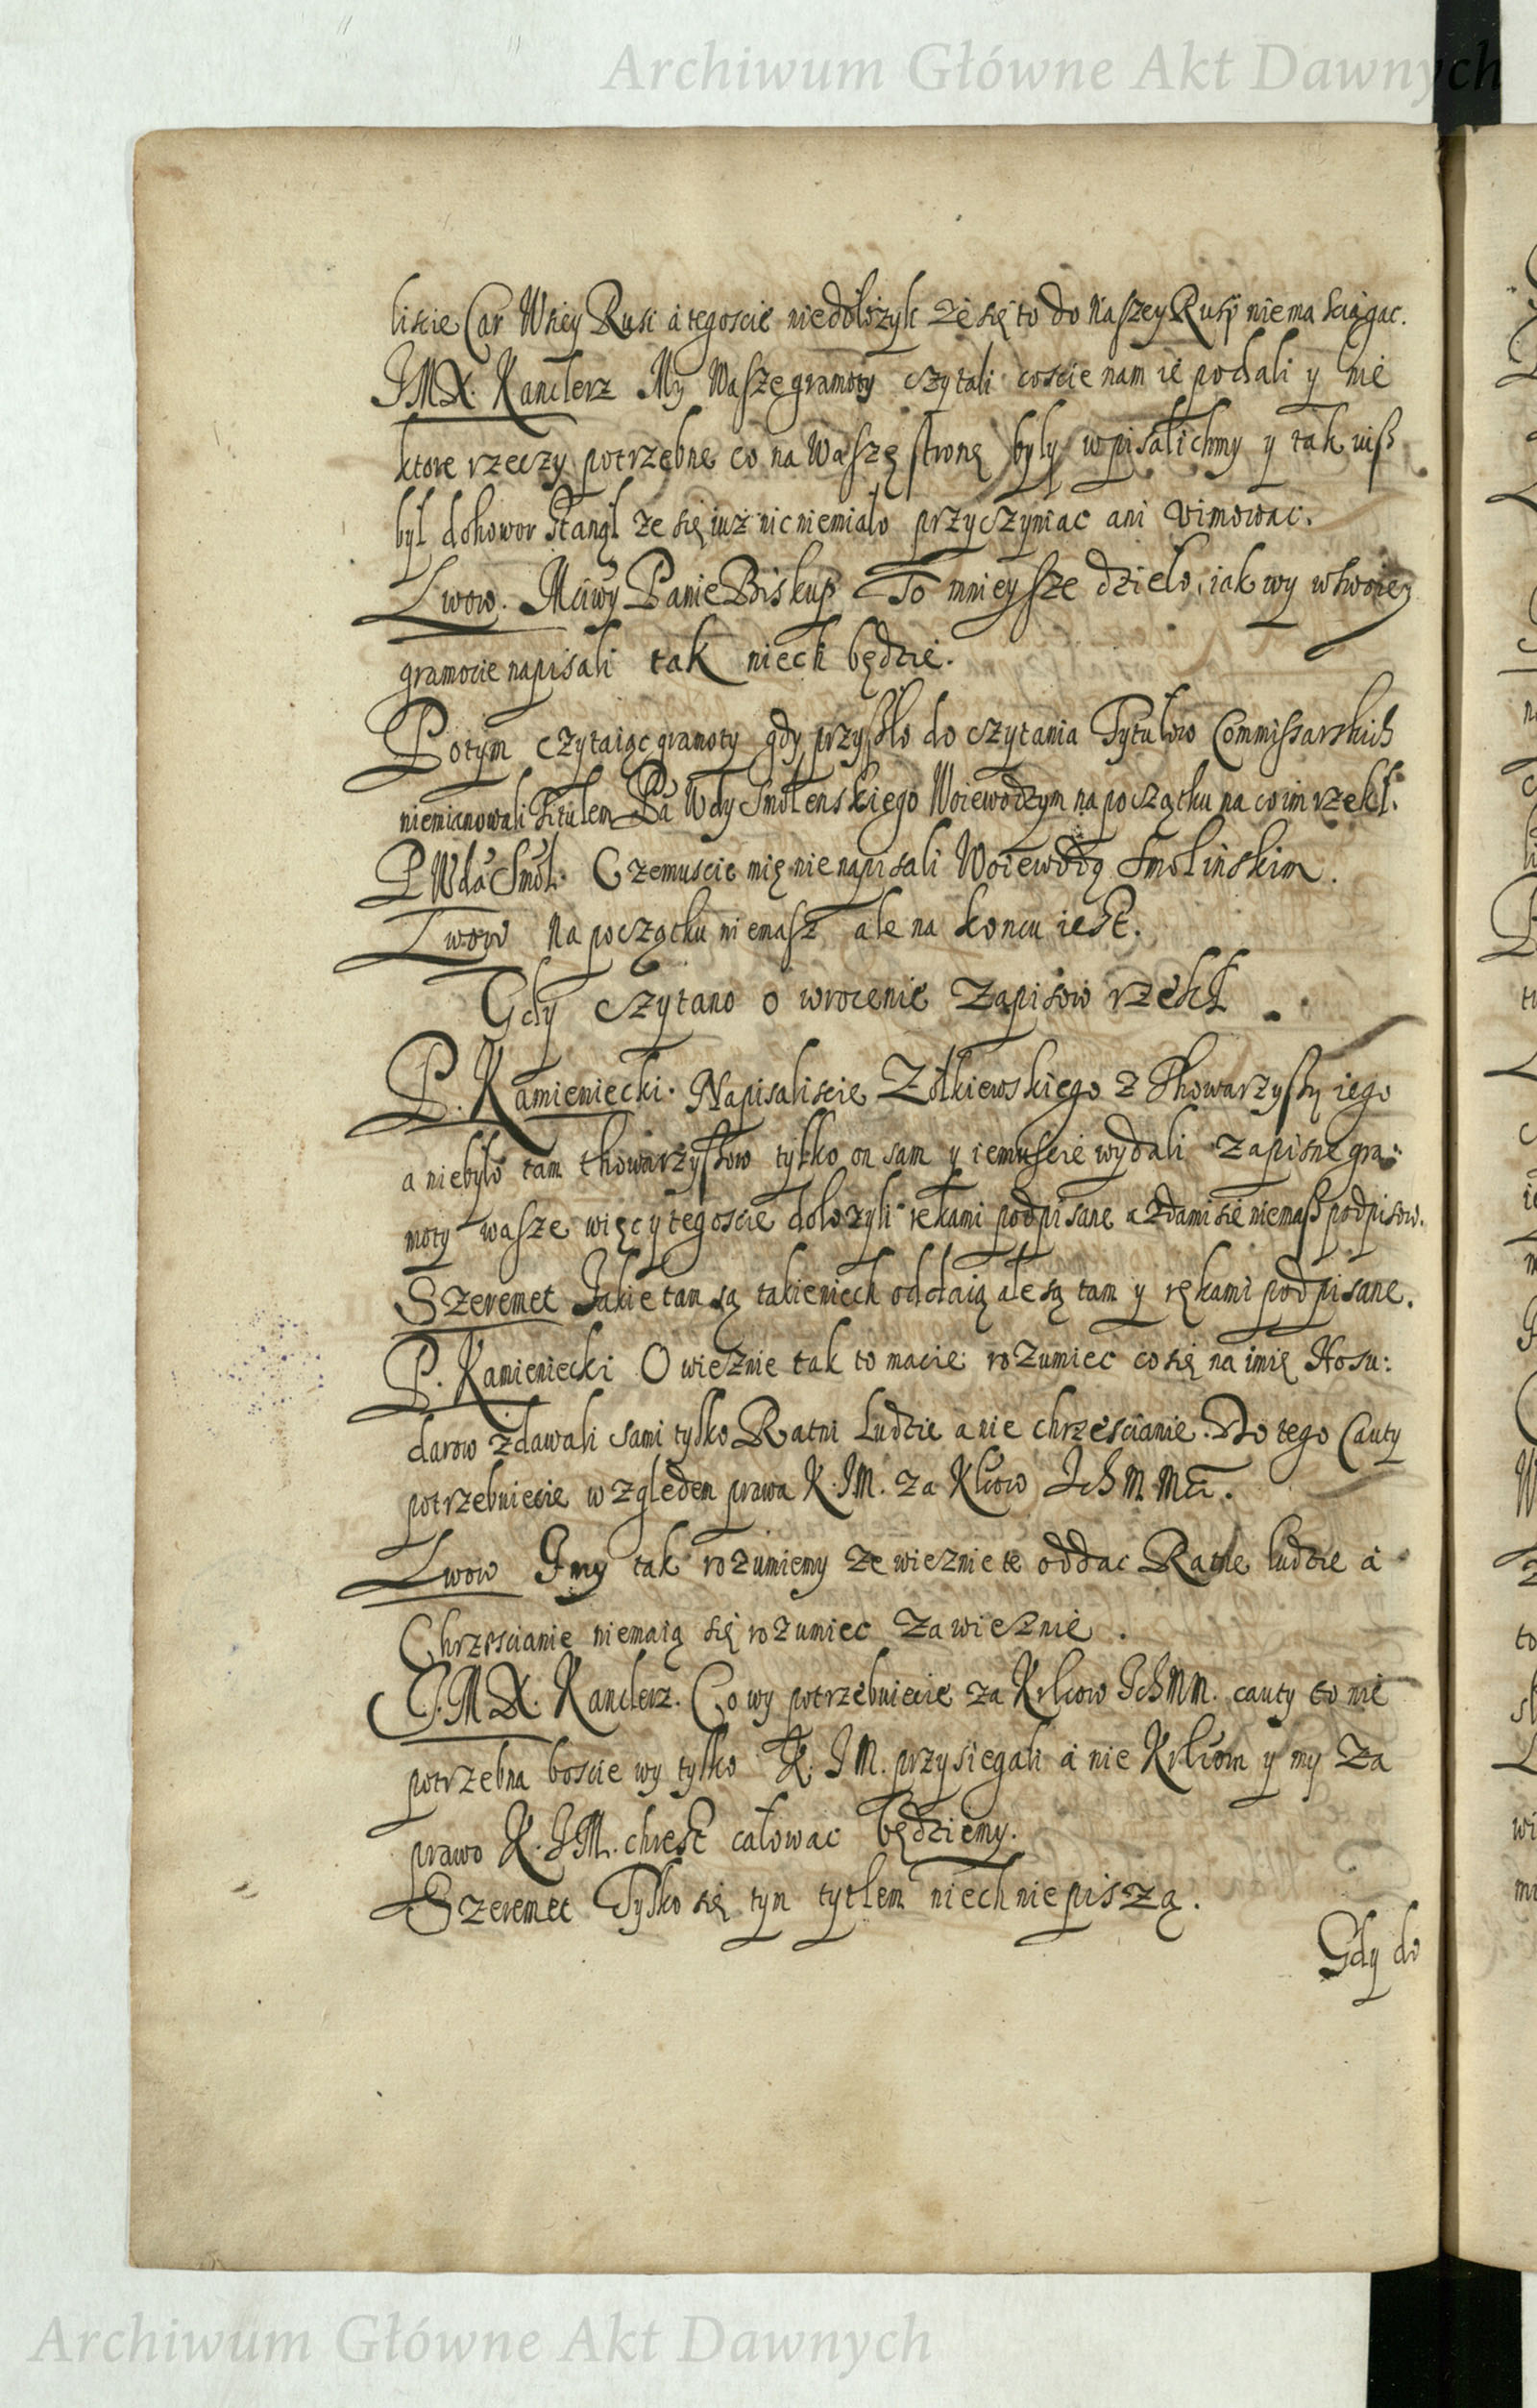 Archiwum Główne Akt Dawnych
liscie Car Wszey Rusi a tegoscie niedołożyli że się to do Naszey Rusi niema sciągac.
JMX. Kanclerz My Wasze gramoty czytali coscie nam ie podali y nie
ktore rzeczy potrzebne co na Waszę stronę były wpisalichmy y tak iusz
był dohowor stanął że się iuż nic niemiało przyczyniac ani vimowac.
Lwow. Mciwy Panie Biskup To mnieysze dzieło, iak wy w swoiey
gramocie napisali tak niech będzie.
Potym czytaiąc gramoty gdy przyszło do czytania Tytułow Commissarskich
niemianowali Titulem Pa Wdy Smolenskiego Woiewodzym na początku na co im rzekł.
P Wda Smol. Czemuscie mię nie napisali Woiewodą Smolinskim.
Lwow Na początku niemasz ale na koncu iest.
Gdy czytano o wrocenie Zapisow rzekł
P. Kamieniecki. Napisaliscie Żołkiewskiego z Thowarzyszy iego
a niebyło tam thowarzyszow tylko on sam y iemuscie wydali zapisne gra:
moty wasze więc y tegoscie dołożyli rękami podpisane a zdami sie niemasz podpisow.
Szeremet Jakie tam są takie niech oddaią ale są tam y rękami podpisane.
P. Kamieniecki O wieznie tak to macie rozumiec co się na imię Hosu:
darow zdawali sami tylko Ratni Ludzie a nie chrzescianie. Do tego Cauty
potrzebuiecie względem prawa K. JM. za Klcow Ich M. Mci.
Lwow Y my tak rozumiemy że wieznie te oddac Ratne ludzie a
Chrzescianie niemaią się rozumiec za wieznie.
J.M X. Kanclerz. Co wy potrzebuiecie za Krlcow IchMM. cauty to nie
potrzebna boscie wy tylko K. JM. przysiegali a nie Krlcom y my za
prawo K. JM. chrest całowac będziemy.
Szeremet Tylko się tym tytłem niech nie piszą.
Gdy do
Archiwum Główne Akt Dawnych